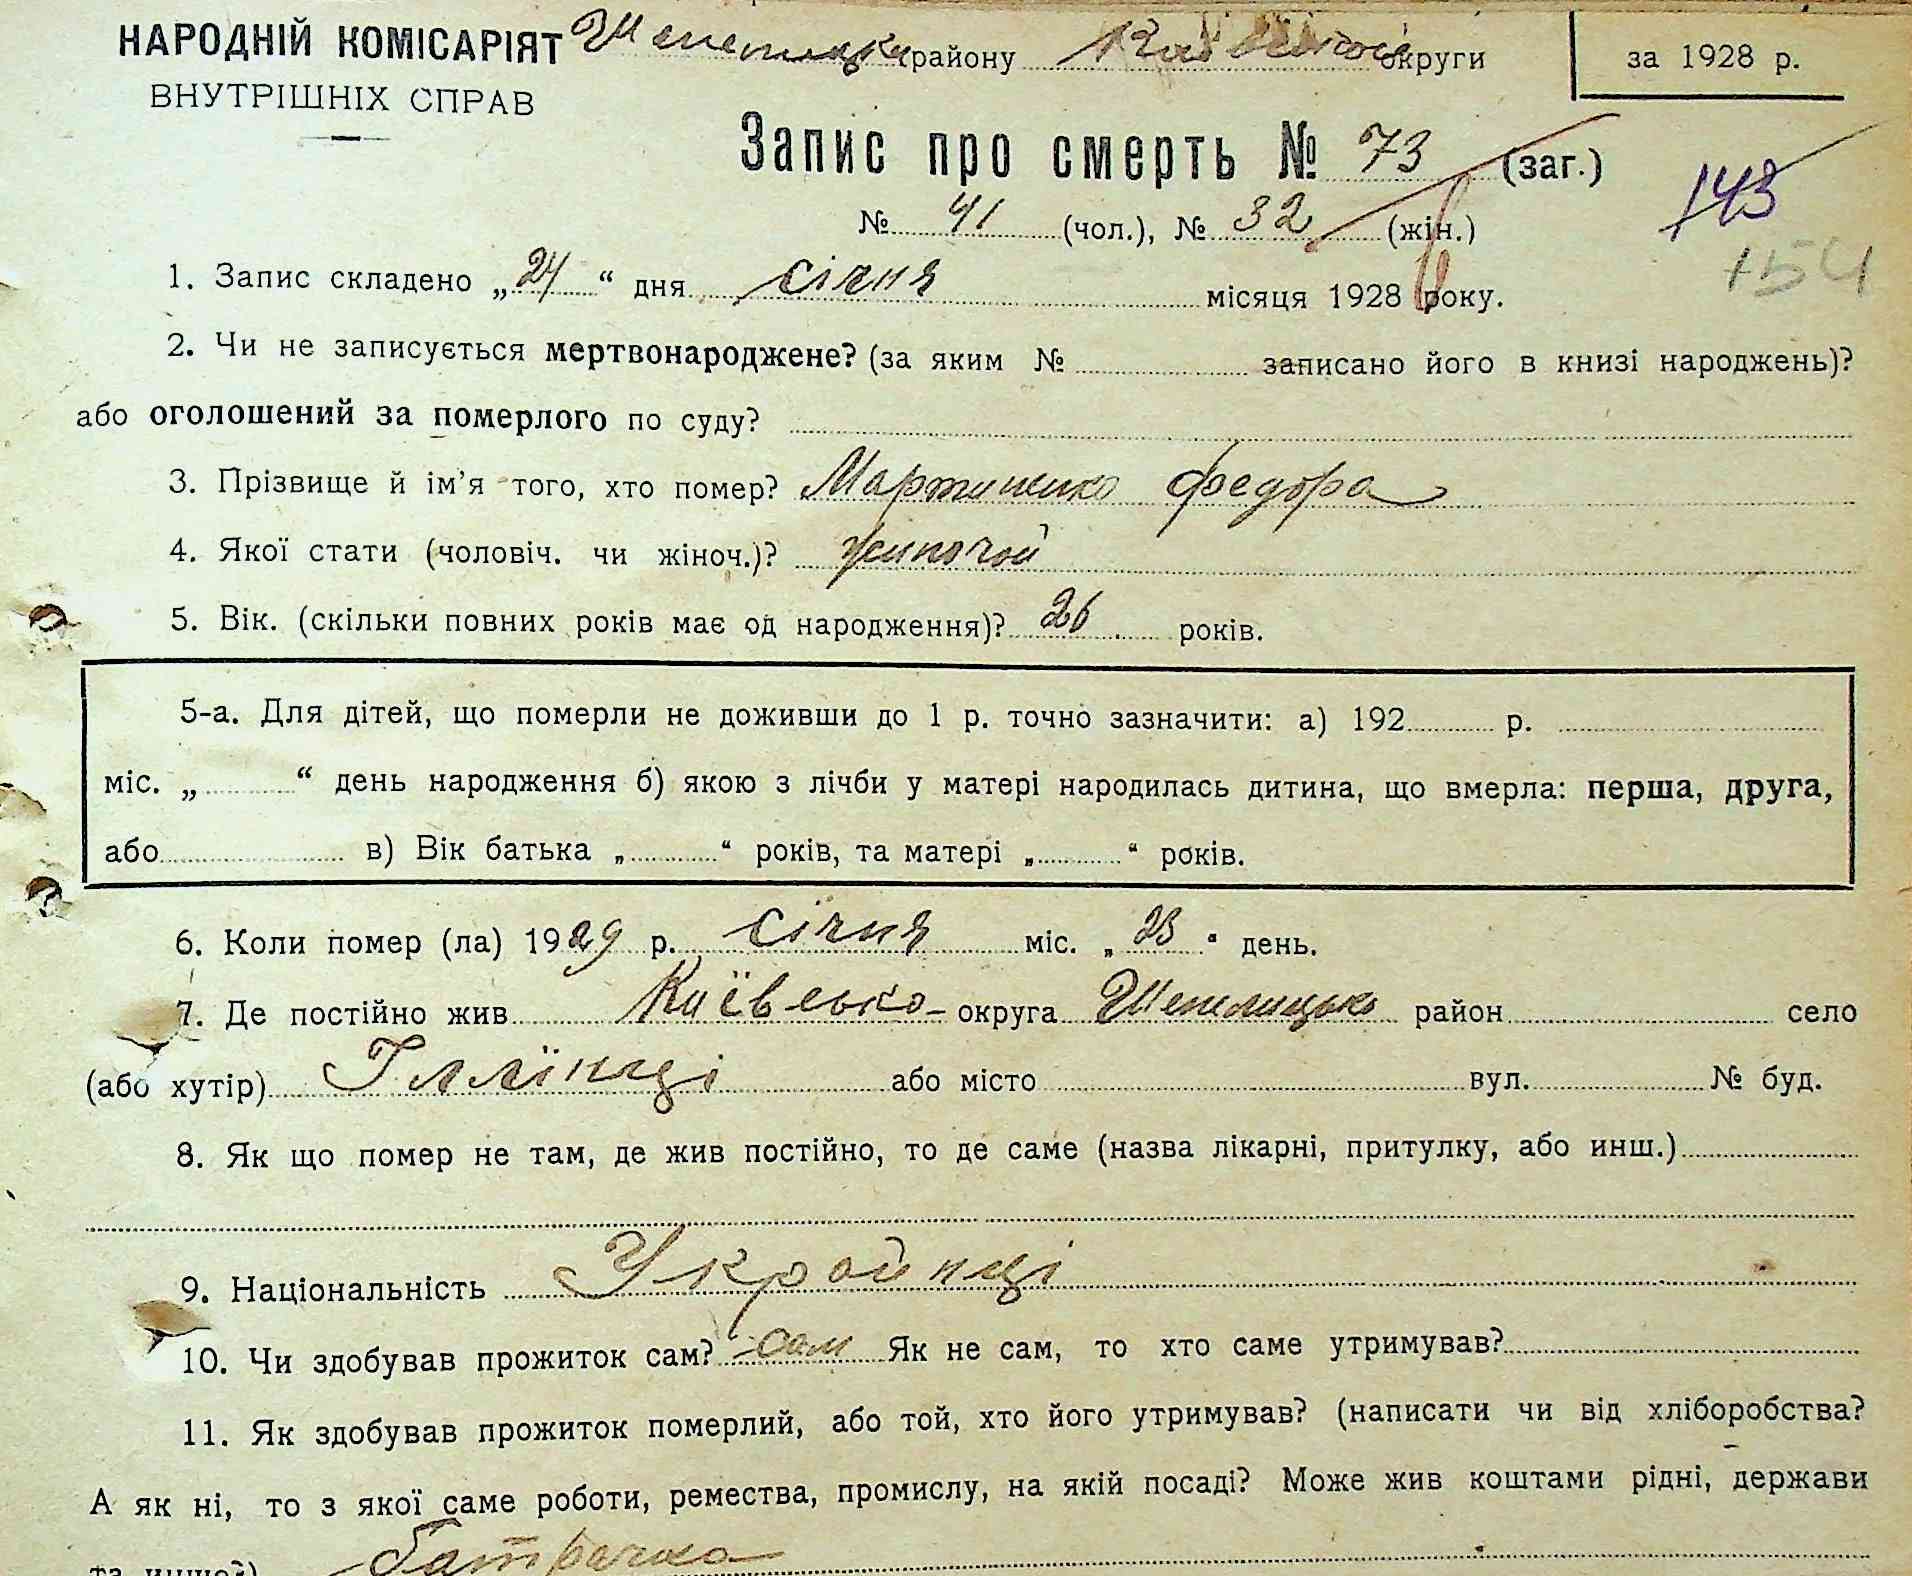 НАРОДНІЙ КОМІСАРІЯТ Шепелицьк району Київської округи за 1928 р.
ВНУТРІШНІХ СПРАВ
Запис про смерть № 73 (заг.) 143
№ 41 (чол.), № 32 (жін.)
154
1. Запис складено „24“ дня січня місяця 1928 року.
2. Чи не записується мертвонароджене? (за яким № записано його в книзі народжень)?
або оголошений за померлого по суду?
3. Прізвище й ім’я того, хто помер? Мартиненко Федора
4. Якої стати (чоловіч. чи жіноч.)? жиночой
5. Вік. (скільки повних років має од народження)? 26 років.
5-а. Для дітей, що померли не доживши до 1 р. точно зазначити: а) 192 р.
міс. „ “ день народження б) якою з лічби у матері народилась дитина, що вмерла: перша, друга,
або в) Вік батька „ “ років, та матері „ “ років.
6. Коли помер (ла) 1929 р. січня міс. „23“ день.
7. Де постійно жив Київсько- округа Шепелицько район село
(або хутір) Іллїнці або місто вул. № буд.
8. Як що помер не там, де жив постійно, то де саме (назва лікарні, притулку, або инш.)
9. Національність Укройнці
10. Чи здобував прожиток сам? сам Як не сам, то хто саме утримував?
11. Як здобував прожиток померлий, або той, хто його утримував? (написати чи від хліборобства?
А як ні, то з якої саме роботи, ремества, промислу, на якій посаді? Може жив коштами рідні, держави
та инщой) батрачка